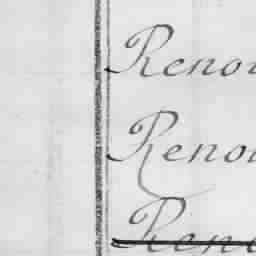 Renou
Renou
Rene